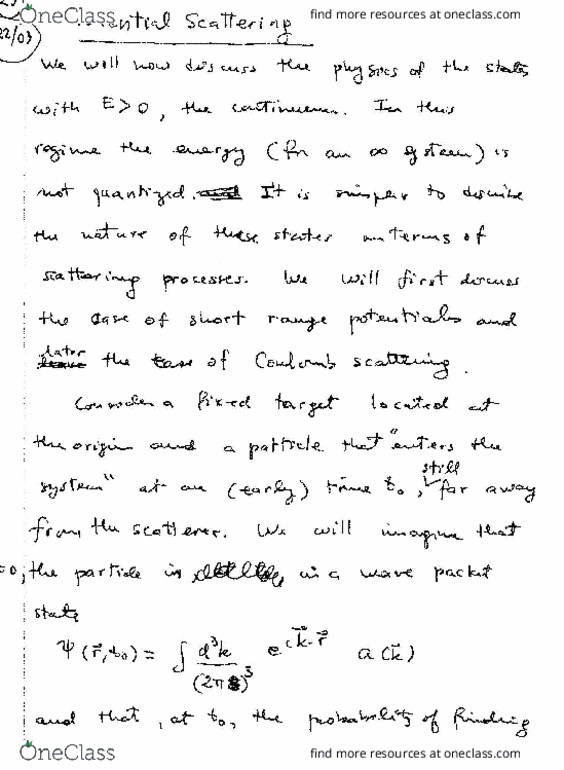 OneClass
find more resources at oneclass.com
ential Scattering
22/03
We will now discuss the physics of the states
with E>0, the continuum. In this
regime the energy (for an ∞ system) is
not quantized. It is simpler to describe
the nature of these states in terms of
scattering processes. We will first discuss
the case of short range potentials and
later the case of Coulomb scattering.
Consider a fixed target located at
the origin and a particle that "enters the
system" at an (early) time t₀, still far away
from the scatterer. We will imagine that
=0, the particle is in a wave packet
state
Ψ(r⃗,t₀) = ∫ d³k/(2π)³ e^{ik⃗·r⃗} a(k⃗)
and that, at t₀, the probability of finding
OneClass
find more resources at oneclass.com